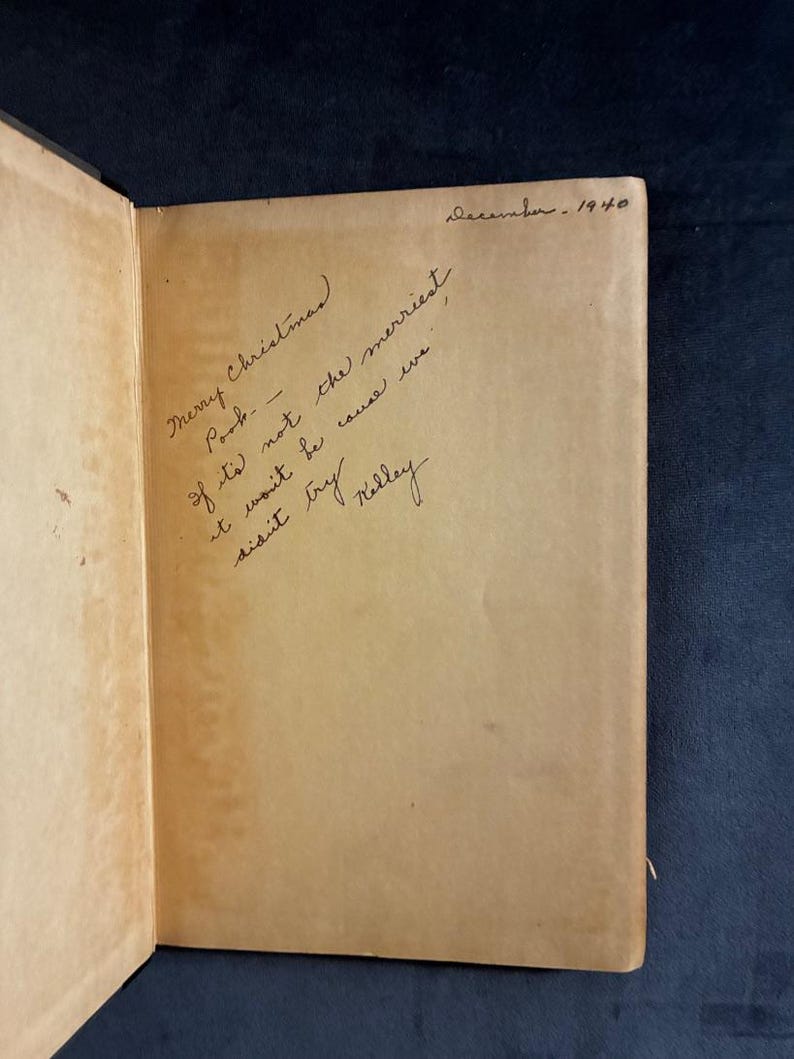 December - 1940
Merry Christmas
Pooh - —
If it's not the merriest,
it won't be cause we
didn't try
Kelley